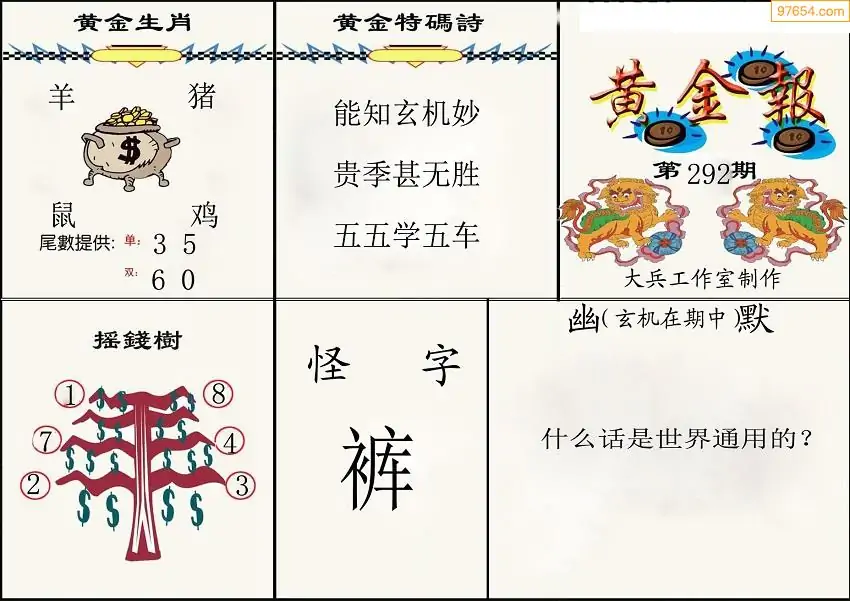 97654.com
黄金生肖
羊 猪
$
鼠 鸡
尾數提供: 单: 3 5
双: 6 0
黄金特碼詩
能知玄机妙
贵季甚无胜
五五学五车
黄金報
10
10
10
第292期
大兵工作室制作
摇錢樹
1 8
7 4
2 3
$ $ $ $
$ $ $ $
$ $ $ $ $ $
$ $ $ $
怪 字
裤
幽(玄机在期中)默
什么话是世界通用的?